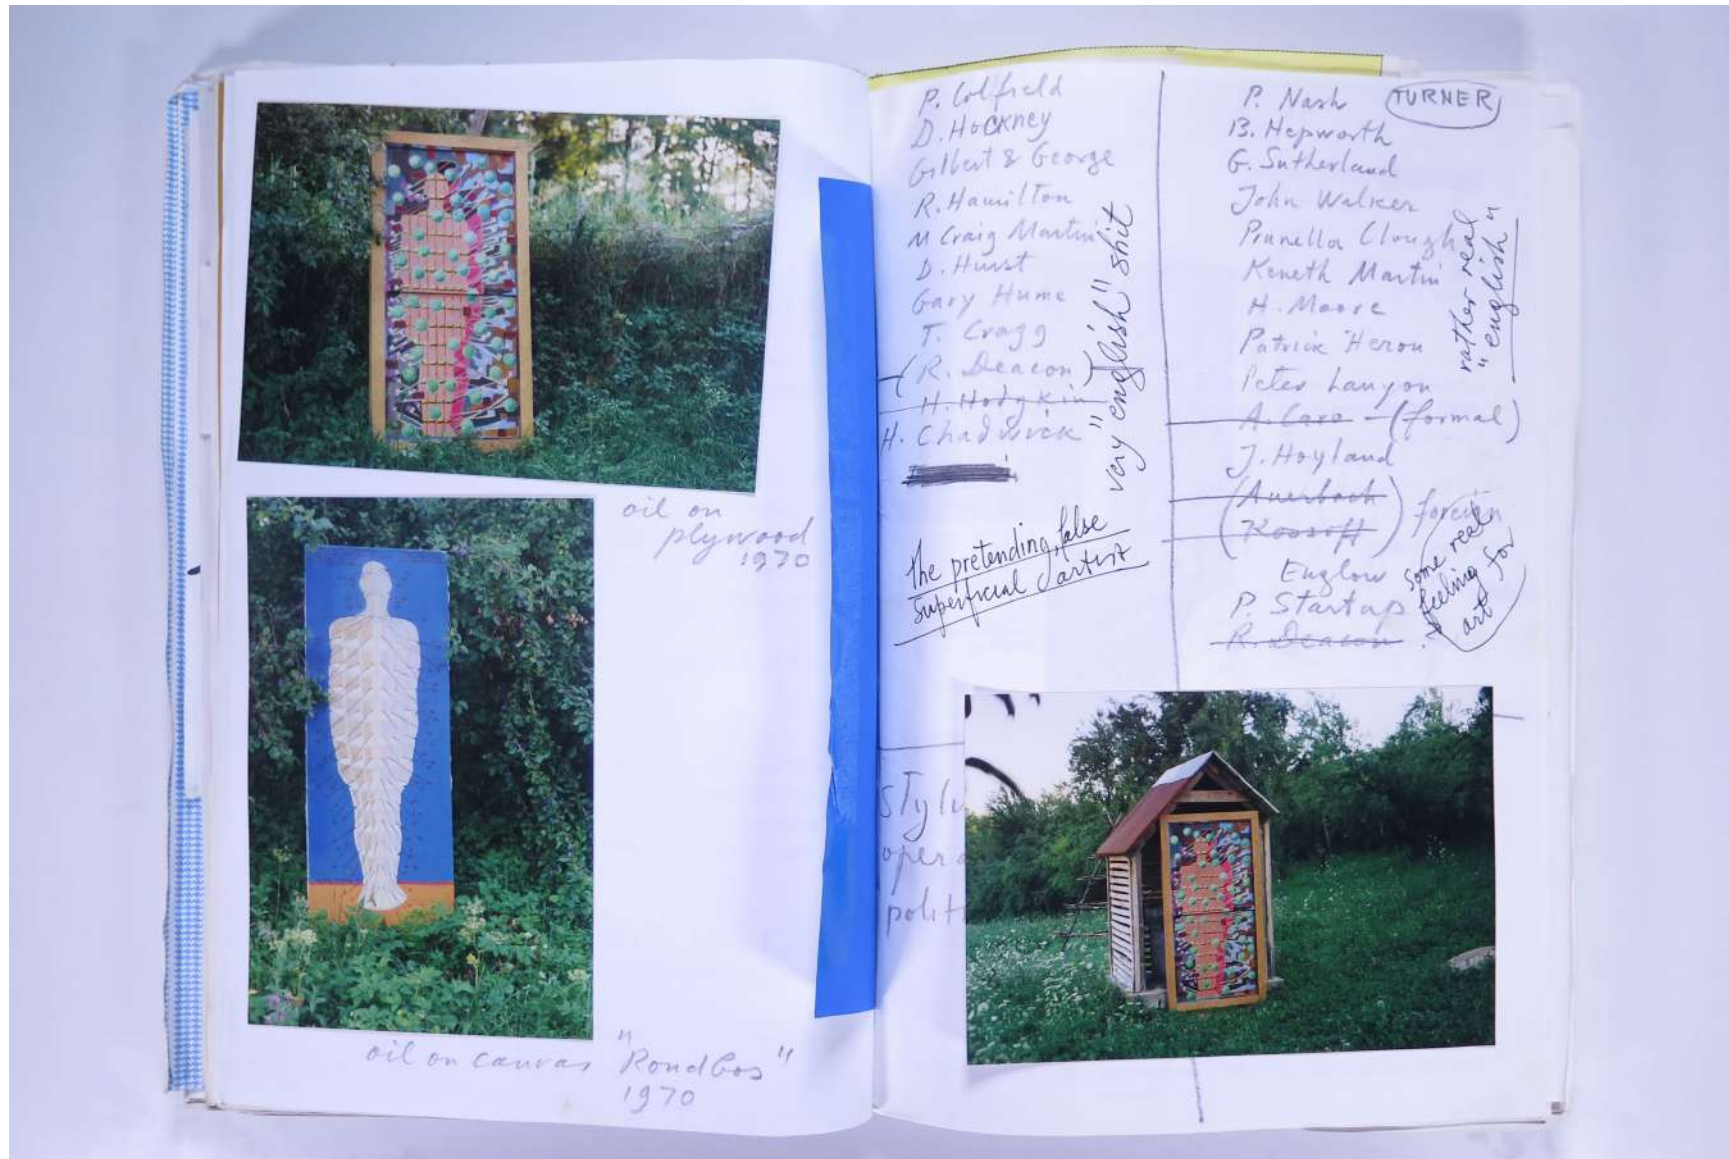 oil on
plywood
1970
oil on canvas "Rondbos"
1970
P. Colfield
D. Hockney
Gilbert & George
R. Hamilton
M Craig Martin
D. Hurst
Gary Hume
T. Cragg
(R. Deacon)
H. Hodgkin
H. Chadwick
very "english" shit
the pretending, false
superficial artist
P. Nash
TURNER
B. Hepworth
G. Sutherland
John Walker
Prunella Clough
Keneth Martin
H. Moore
Patrick Heron
Peter Lanyon
rather real
"english"
A. Caro - (formal)
J. Hoyland
(Auerbach
Kossoff) foreign
Euglow
P. Startup
R. Deacon
some real
feeling for
art
polit